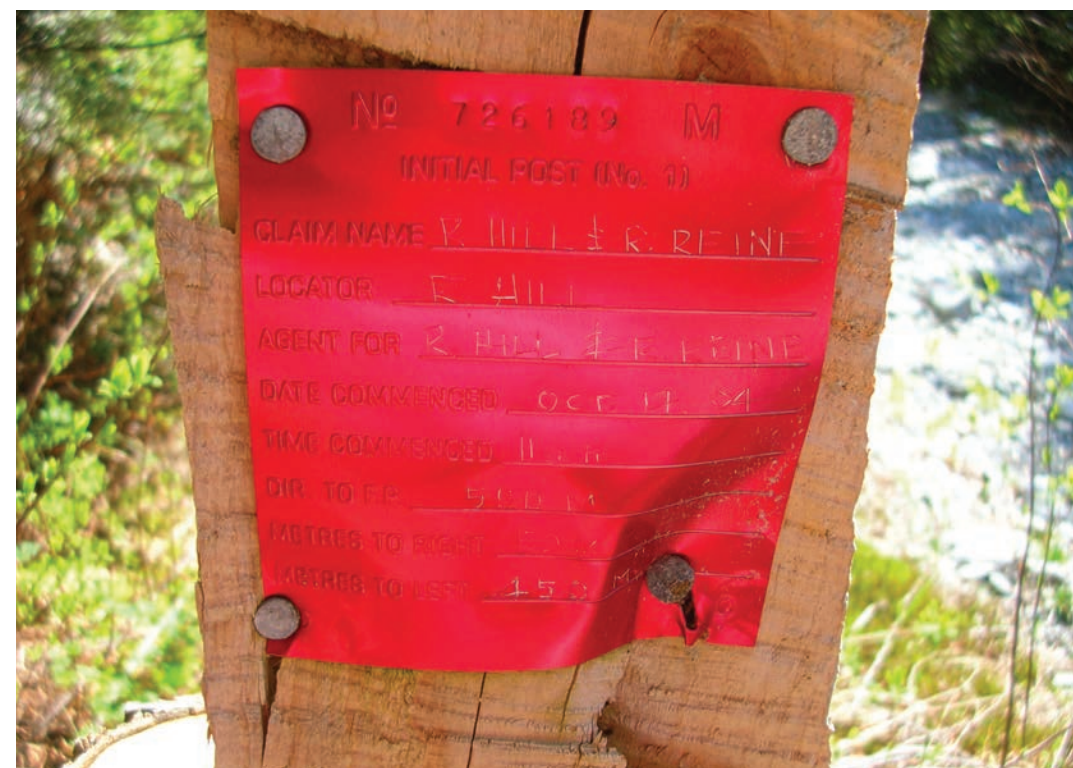 No 726189 M
INITIAL POST (No. 1)
CLAIM NAME R. HILL & R. REINE
LOCATOR R HILL
AGENT FOR R. HILL & R. REINE
DATE COMMENCED OCT. 04
TIME COMMENCED
DIR. TO F.P. 500 M
METRES TO RIGHT
METRES TO LEFT 150 M